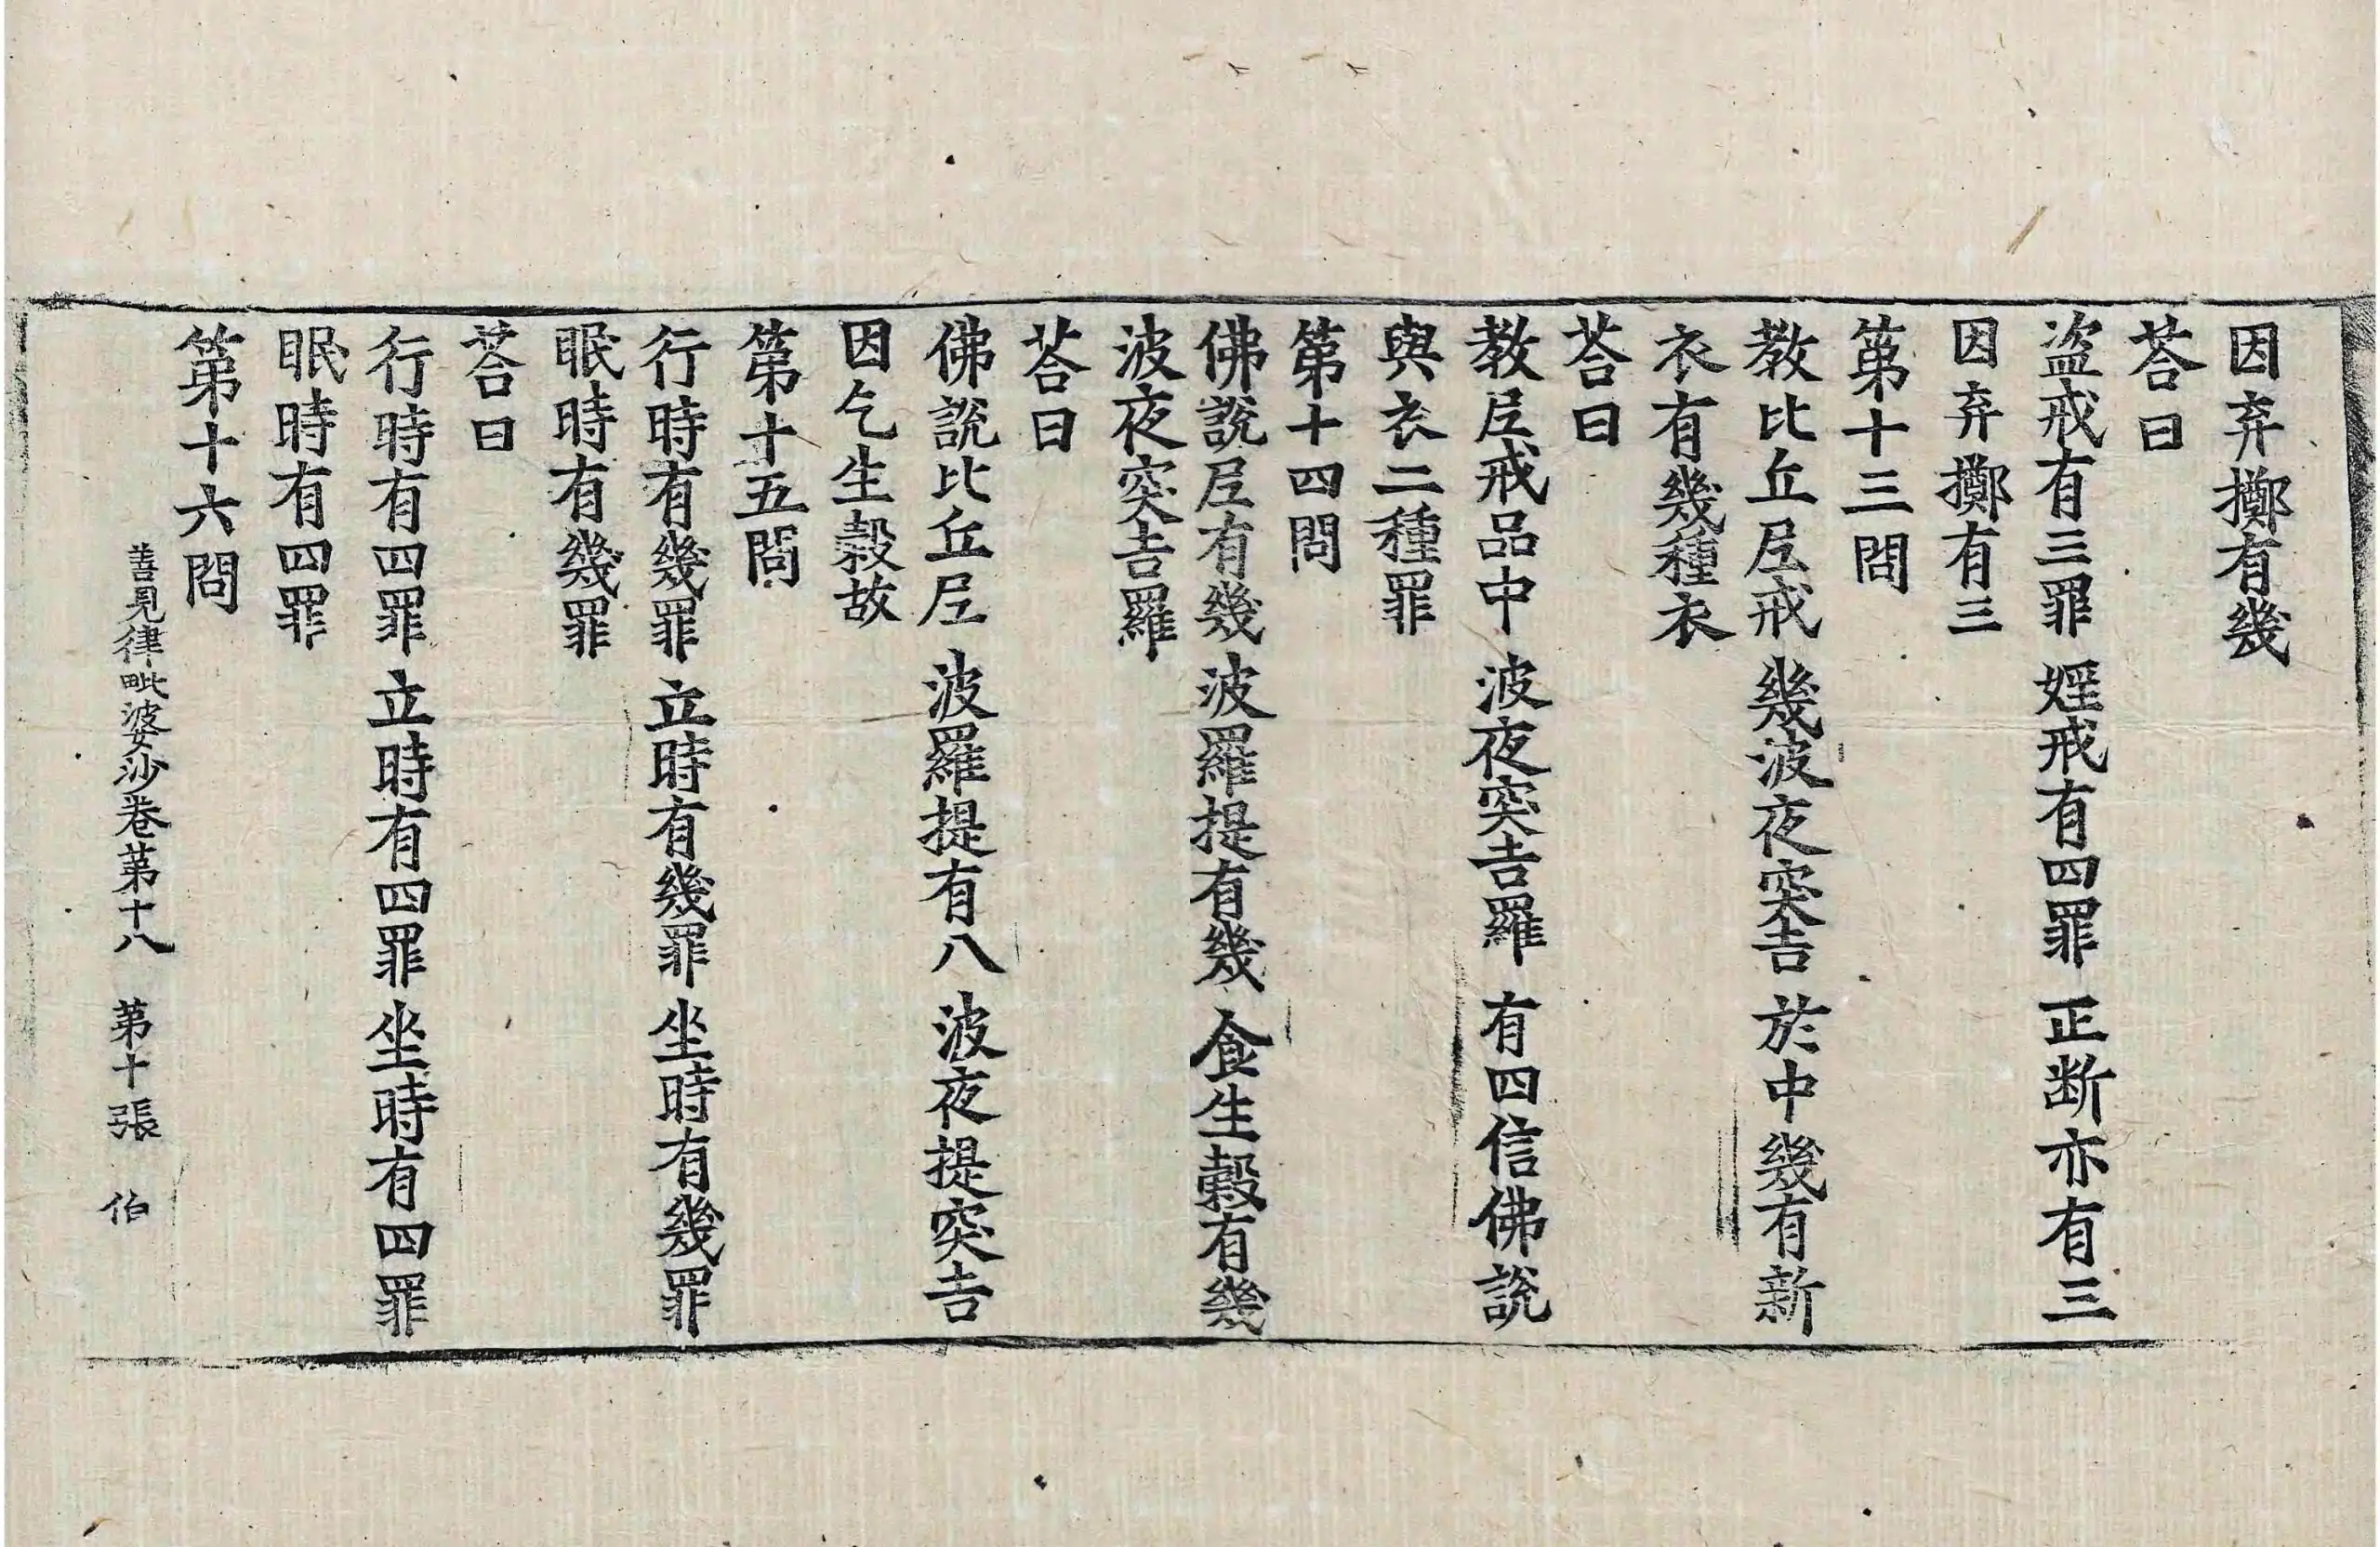 因弃擲有幾
荅曰
盗戒有三罪 婬戒有四罪 正断亦有三
因弃擲有三
第十三問
教比丘尼戒 幾波夜突吉 於中幾有新
衣有幾種衣
荅曰
教尼戒品中 波夜突吉羅 有四信佛說
與衣二種罪
第十四問
佛說尼有幾 波羅提有幾 食生穀有幾
波夜突吉羅
荅曰
佛說比丘尼 波羅提有八 波夜提突吉
因乞生穀故
第十五問
行時有幾罪 立時有幾罪 坐時有幾罪
眠時有幾罪
荅曰
行時有四罪 立時有四罪 坐時有四罪
眠時有四罪
第十六問
善見律毗婆沙卷第十八 第十張 伯